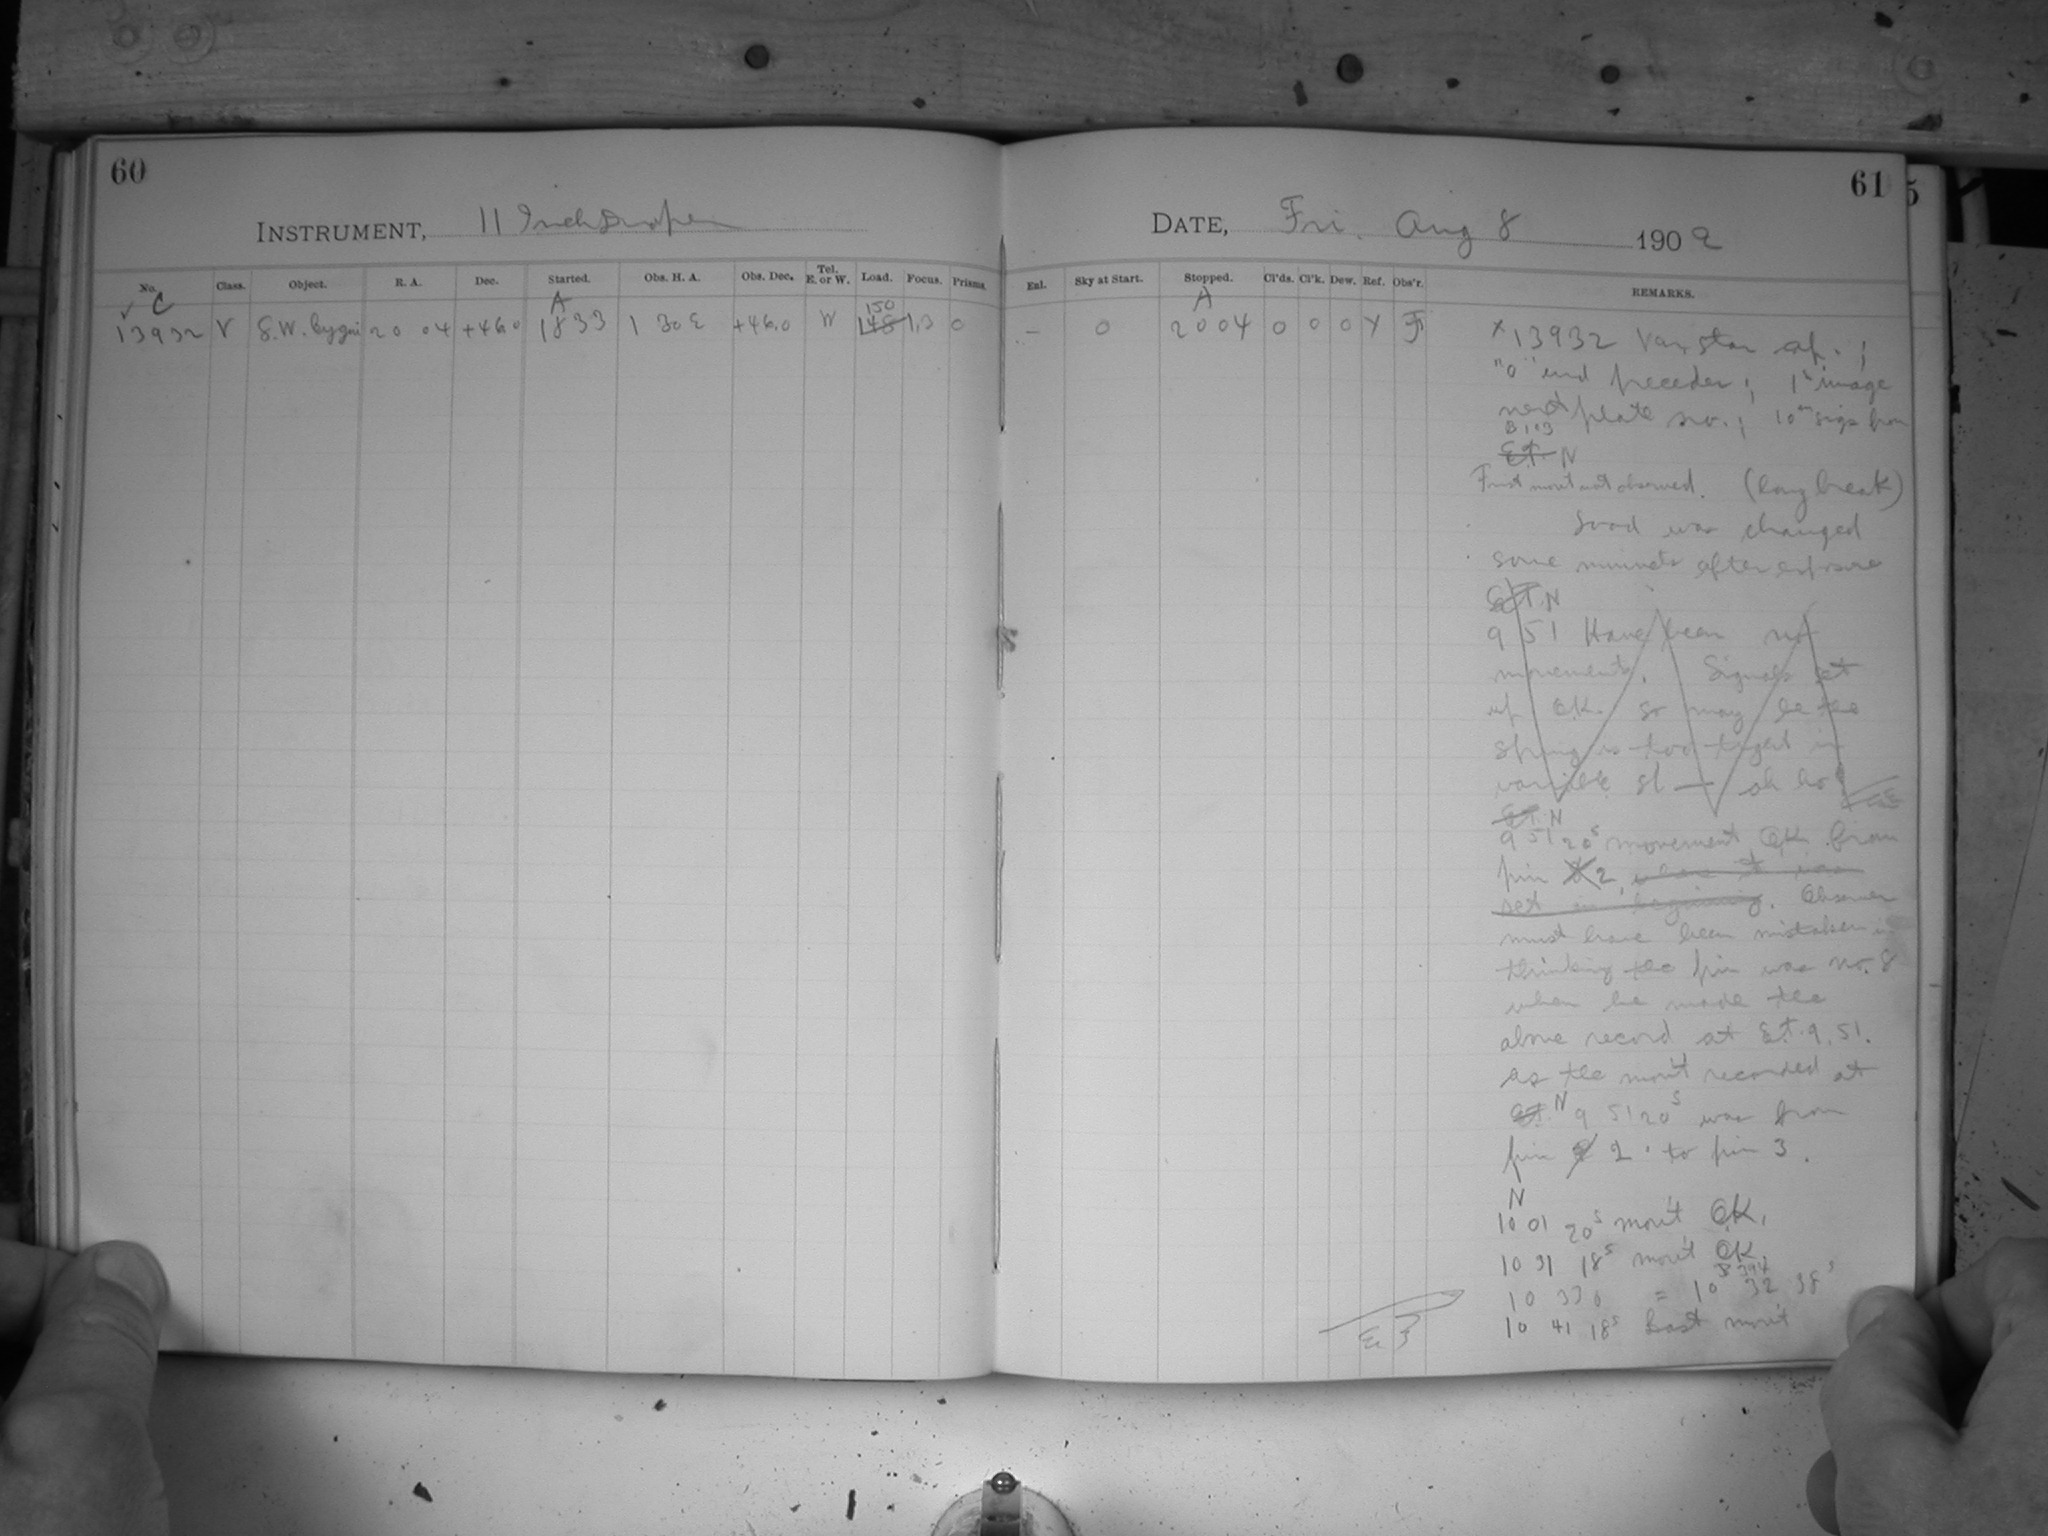 60
INSTRUMENT, 11 Inch Draper
No. Class. Object. R. A. Dec. Started. Obs. H. A. Obs. Dec. Tel. E. or W. Load. Focus. Prisms.
C A 150
13932 V S.W. Cygni 20 04 +46.0 18 33 1 30 E +46.0 W 148 1.3 0
61
5
DATE, Fri. Aug 8 1902
Enl. Sky at Start. Stopped. Cl'ds. Cl'k. Dew. Ref. Obs'r. REMARKS.
A
— 0 20 04 0 0 0 Y F
x 13932 Var. star
"0" end preceder; 1st image
next plate no.; 10m sigs from
E.T. N
First mov't not observed. (long break)
Load was changed
some minutes after exposure
E.T. N
9 51 Have been no
movements. Signals set
up OK. so may be the
spring is too tight in
variable sl — oh no!
E.T. N
9 51 20s movement OK from
pin 2, where it was
set in beginning. Observer
must have been mistaken in
thinking the pin was no. 8
when he made the
above record at E.T. 9.51.
as the mov't recorded at
E.T. N 9 51 20s was from
pin 2 to pin 3.
N
10 01 20s mov't OK.
10 31 18s mov't OK.
10 33 0 = 10 32 38s
10 41 18s Last mov't